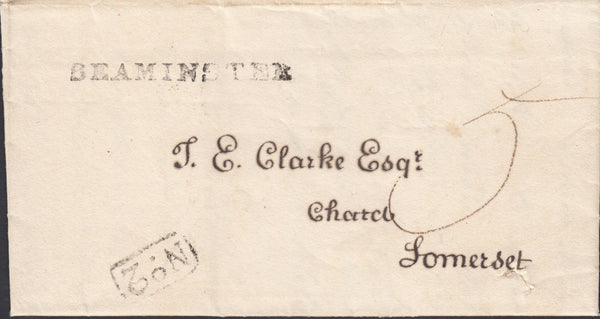 BEAMINSTER
5
T. E. Clarke Esqr.
Chard
Somerset
No. 2